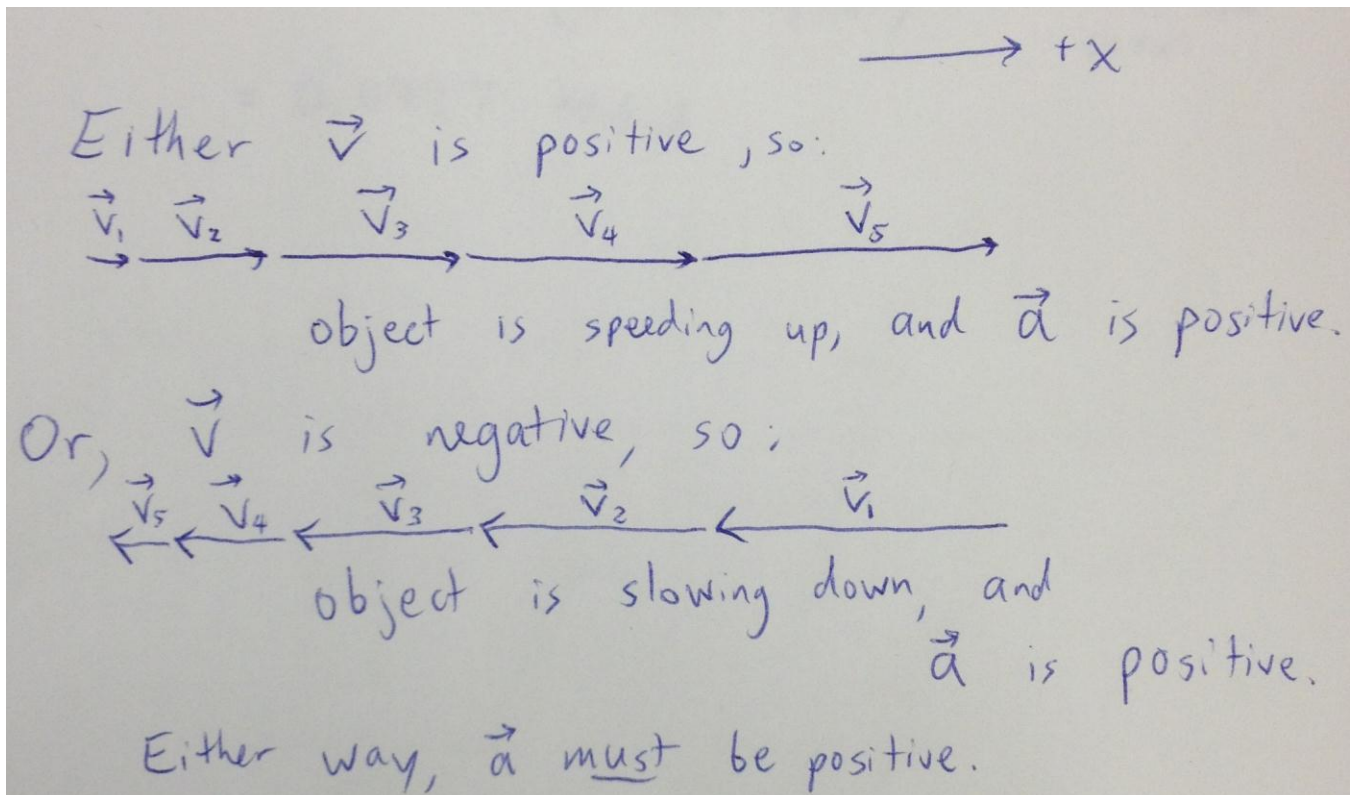 +x
Either v⃗ is positive, so:
v⃗₁ v⃗₂ v⃗₃ v⃗₄ v⃗₅
object is speeding up, and a⃗ is positive.
Or, v⃗ is negative, so:
v⃗₅ v⃗₄ v⃗₃ v⃗₂ v⃗₁
object is slowing down, and
a⃗ is positive.
Either way, a⃗ must be positive.